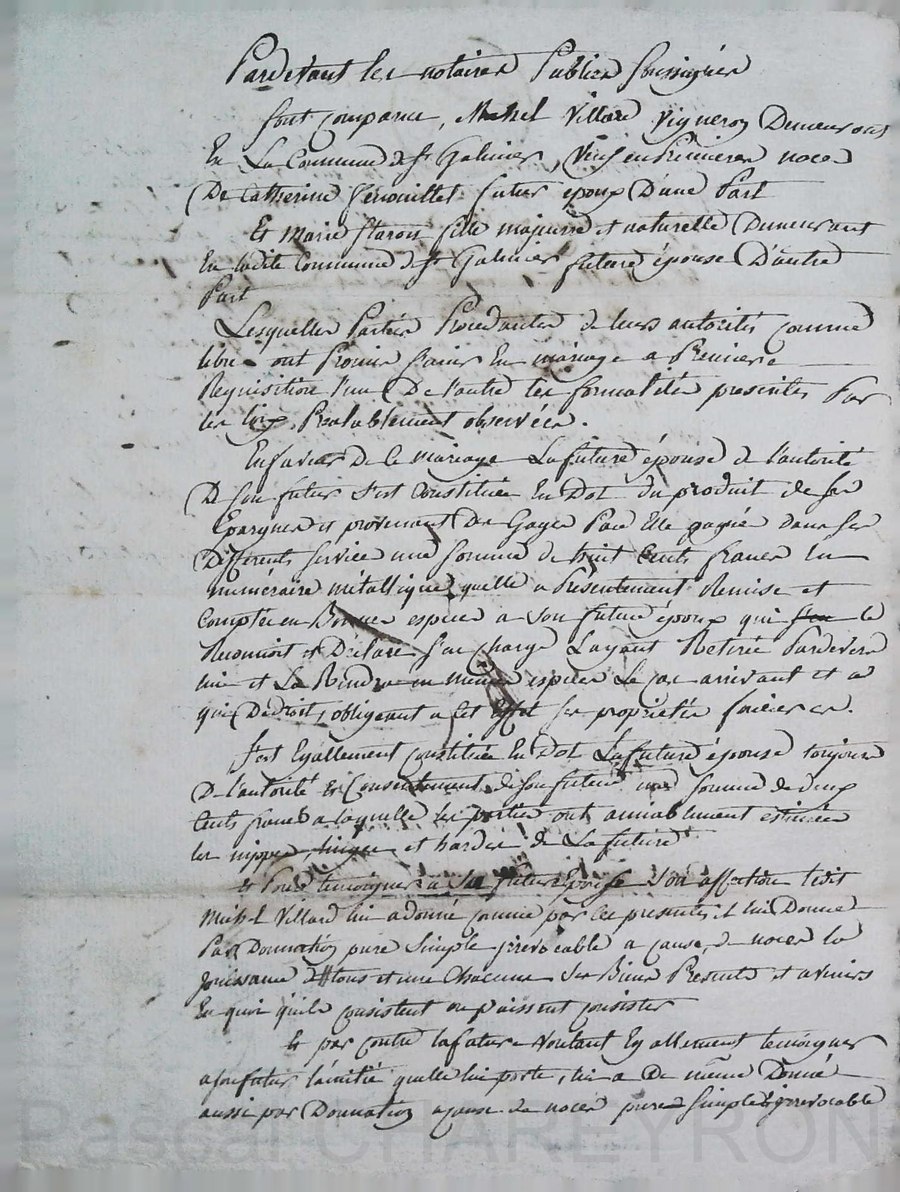 Pardevant les notaires Publics soussignés
sont comparus, Michel Villard Vigneron Demeurant
En La Commune de St Galmier, Veuf en Premieres noces
De Catherine Venouillet futur époux D'une Part
Et Marie Staron fille majeure et naturelle Demeurant
En ladite Commune de St Galmier future épouse D'autre
Part
Lesquelles Parties Procedantes de leurs autorités comme
libre ont Promis s'unir En mariage a Premiere
Requisition l'un De l'autre les formalités prescrites Par
les loix Prealablement observées.
En faveur De ce mariage La future épouse de l'autorité
De son futur s'est Constituée En Dot du produit de ses
Epargnes et provenant Des Gages Par Elle gagné dans ses
Differents service une somme de huit Cents francs En
numéraire métallique quelle a Présentement Remise et
Comptée en Bonnes especes a son future époux qui le
Reconnoit et Déclare s'en charge L'ayant Retirée Pardevers
lui et La Rendre en meme especes Le cas arrivant et a
qui De droit, obligeant a cet Effet ses propriétés foncieres.
s'est Egallement constituée En Dot La future épouse toujours
De l'autorité Et Consentement de son futur une somme de deux
Cents francs a laquelle les parties ont amiablement estimées
les nippes, linges et hardes de La future
et Pour temoigner a Sa future Epouse son affection ledit
Michel Villard lui a donné comme par ces presentes il lui Donne
Par Donnation pure simple irrevocable a cause de noces la
jouissance de tous et une Chacuns ses Biens Présents et avenirs
En quoi quils consistent ou puissent consister
Et par contre la future voulant Egallement temoigner
a son futur l'amitié quelle lui porte, lui a De même Donné
aussi par Donnation a cause de noces pure simple & irrevocable
Pascal CHAREYRON